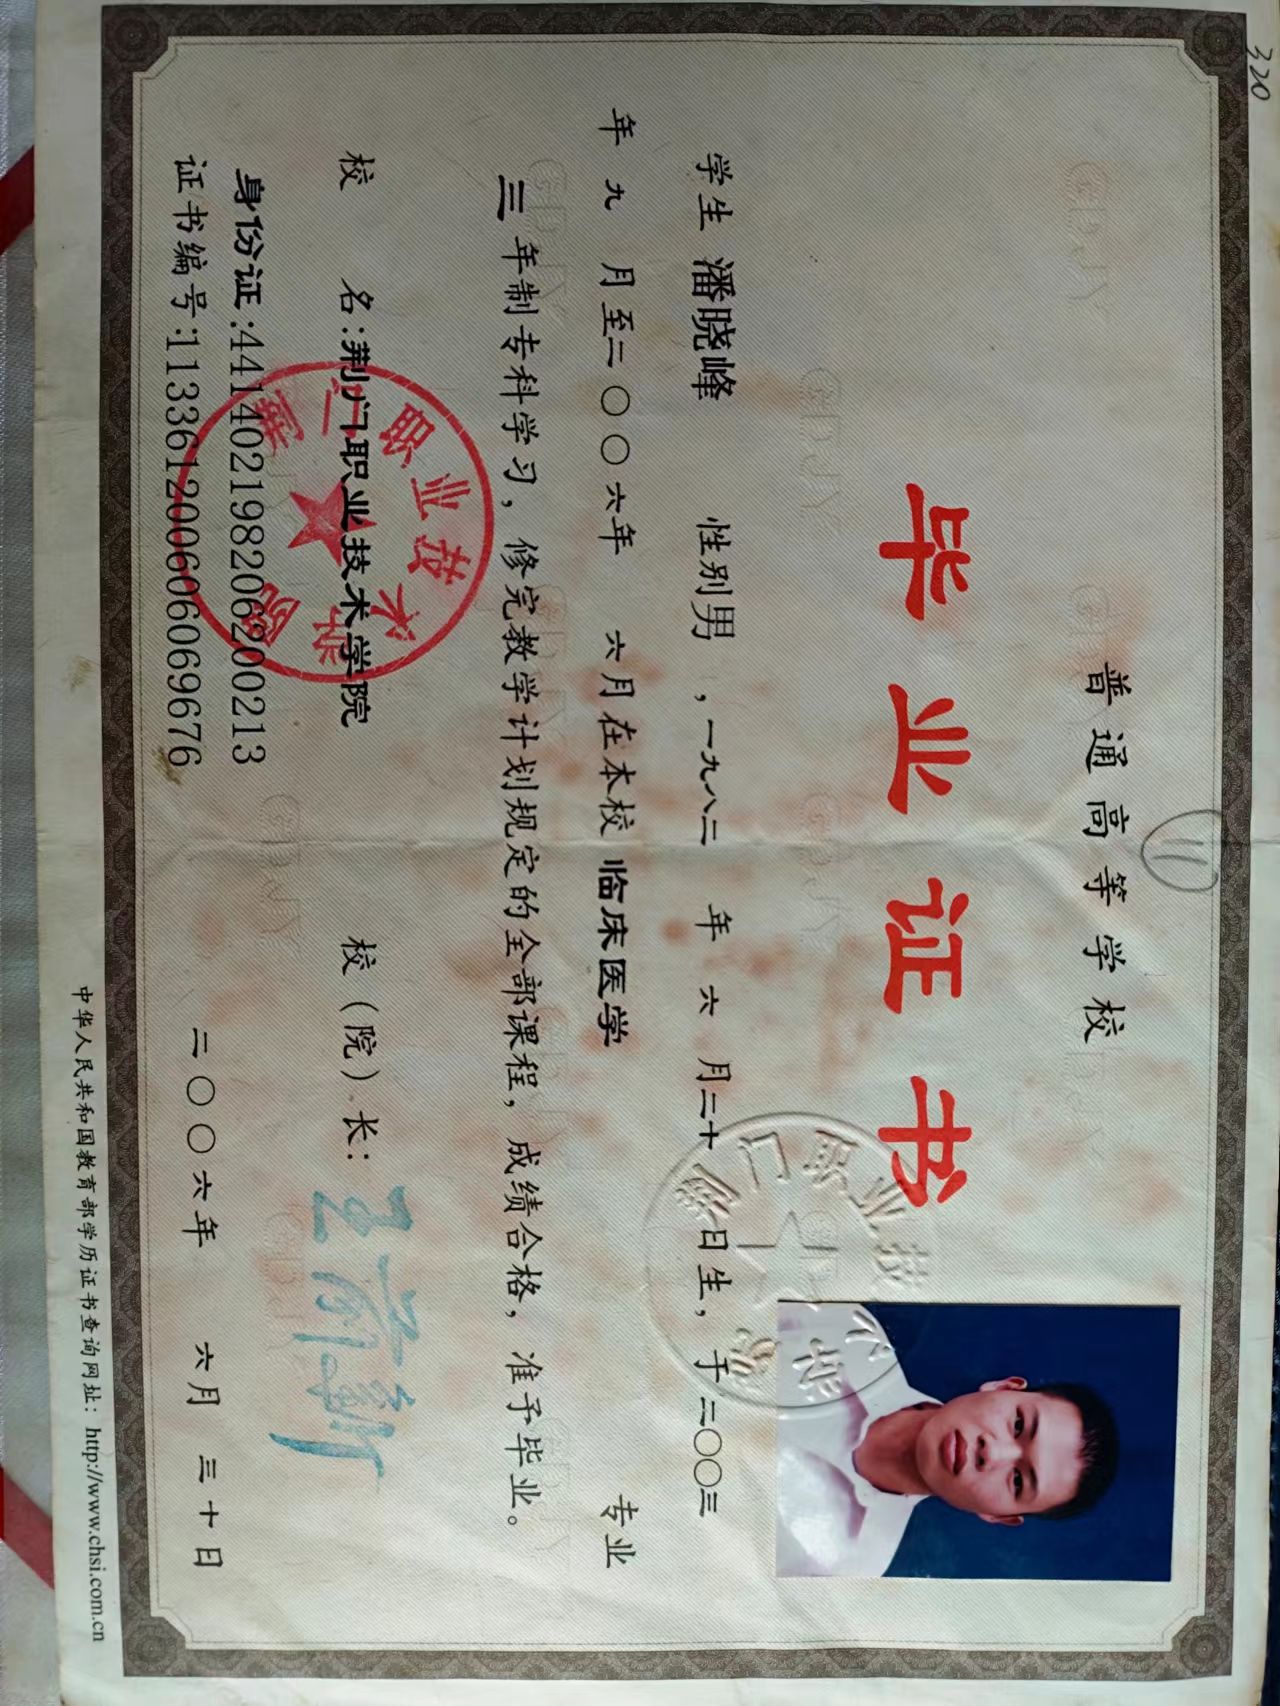 320
普通高等学校
11
毕业证书
学生 潘晓峰 性别男，一九八二 年 六 月二十 日生，于二〇〇三
年 九 月至二〇〇六年 六月在本校 临床医学 专业
三年制专科学习，修完教学计划规定的全部课程，成绩合格，准予毕业。
校 名：荆门职业技术学院 校（院）长：
身份证：441402198206200213
证书编号：113361200606069676 二〇〇六年 六月 三十日
中华人民共和国教育部学历证书查询网址：http://www.chsi.com.cn
荆门职业技术学院
荆门职业技术学院